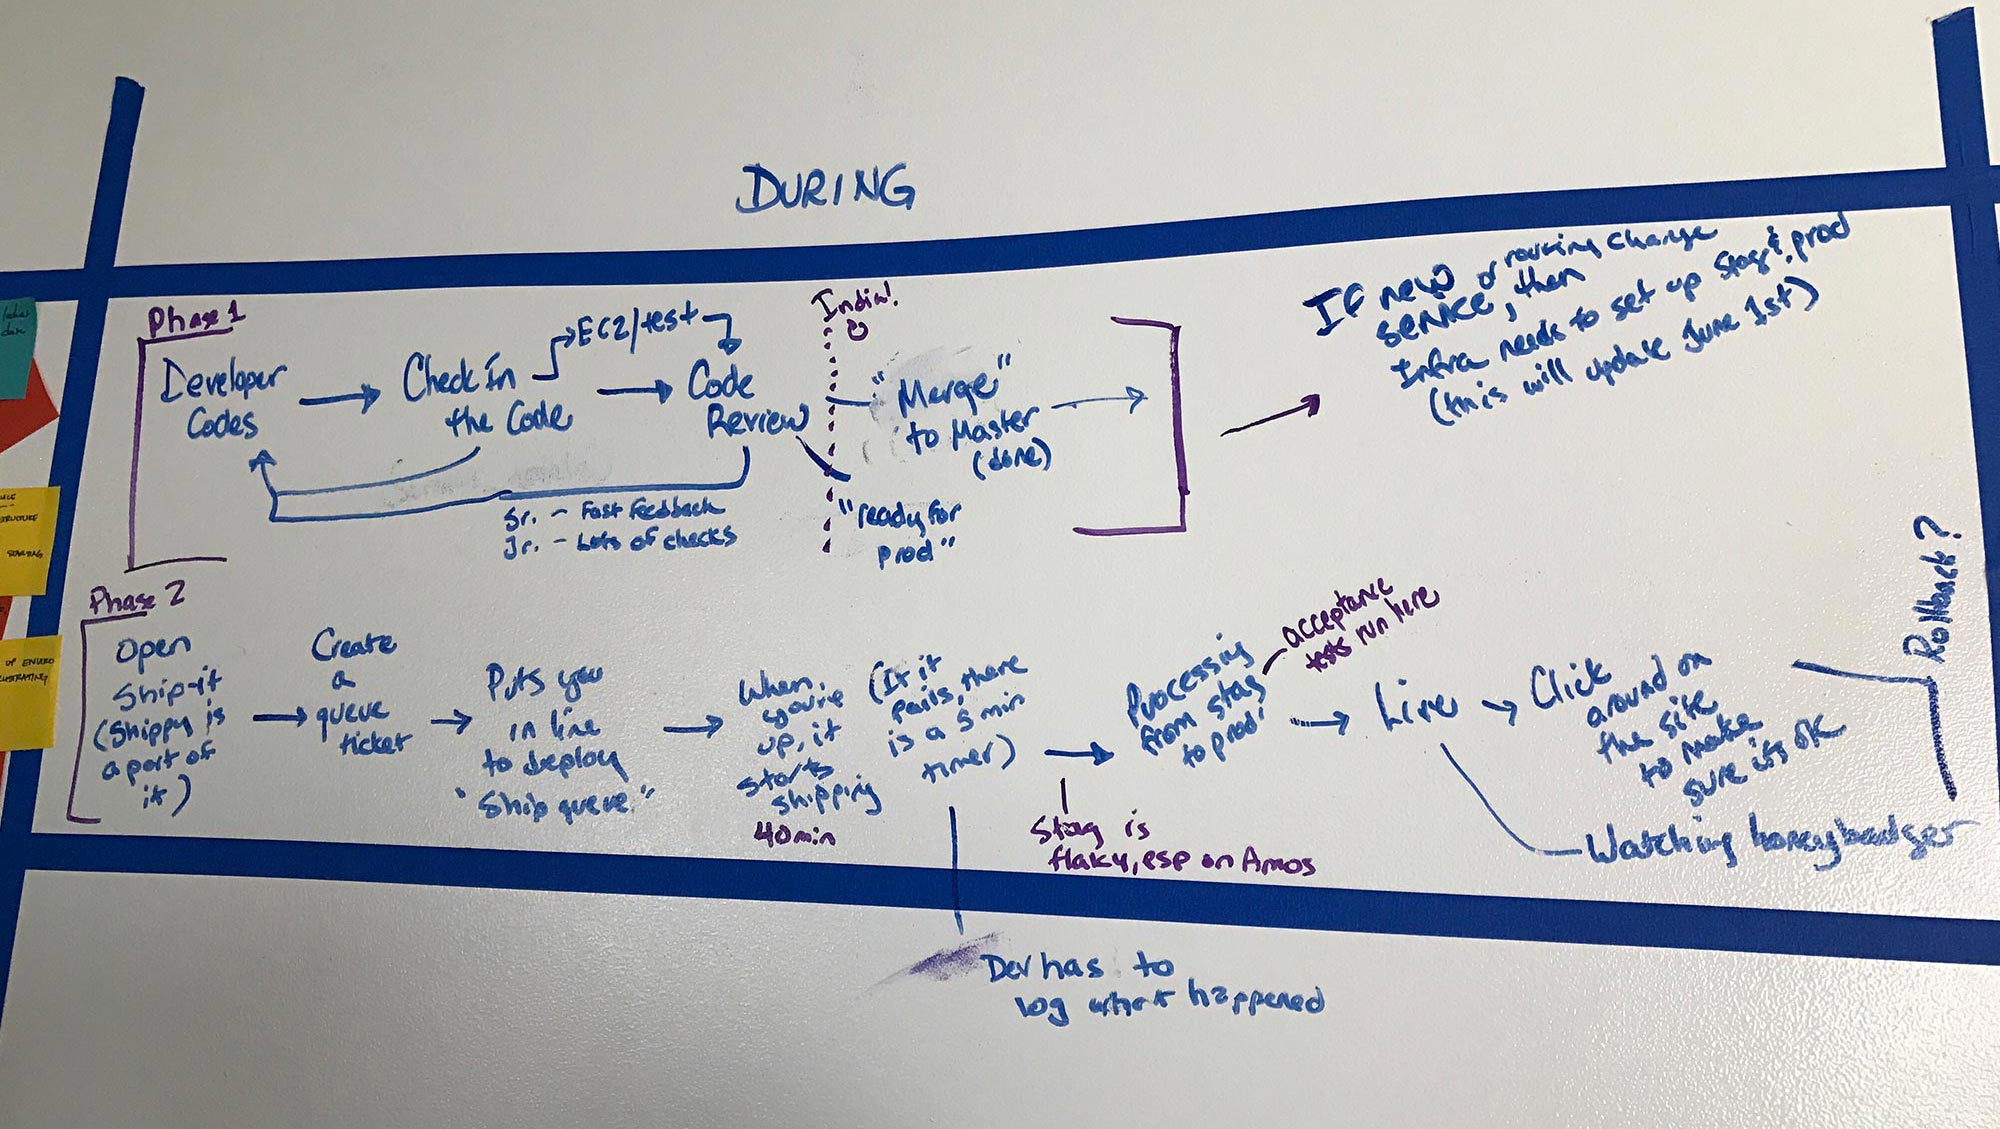 DURING
Phase 1
Developer
Codes
Check In
the Code
EC2/test
Code
Review
India!
"Merge"
to Master
(done)
"ready for
prod"
Sr. - Fast Feedback
Jr. - Lots of checks
If new or routing change
service, then
Infra needs to set up stag & prod
(this will update June 1st)
Phase 2
Open
Ship-it
(Shippy is
a part of
it)
Create
a
queue
ticket
Puts you
in line
to deploy
"Ship queue."
When
you're
up, it
starts
shipping
40min
(If it
fails, there
is a 5 min
timer)
Dev has to
log what happened
Processing
from stag
to prod
acceptance
tests run here
Stag is
flaky, esp on Amos
Live
Click
around on
the site
to make
sure its ok
Watching honeybadger
Rollback?
STRUCTURE
STARTING
UP ENVIRO